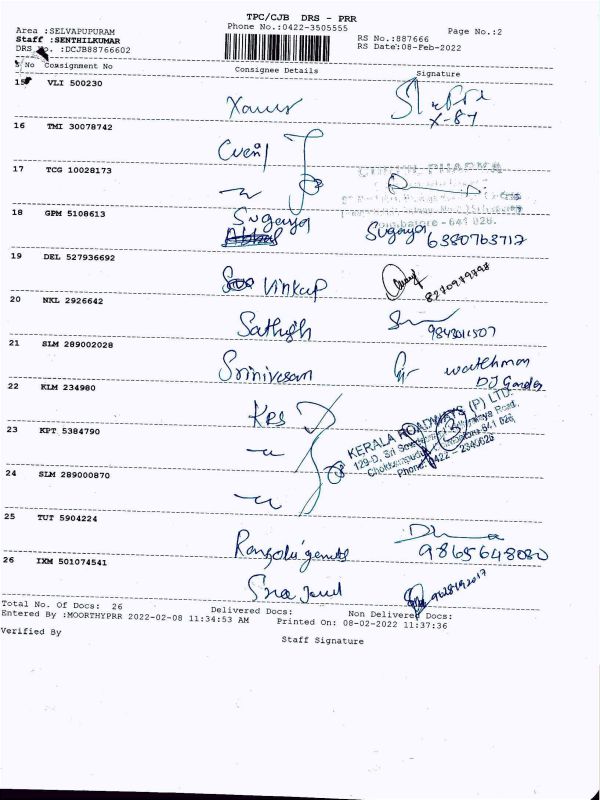 TPC/CJB DRS - PRR
Area :SELVAPUPURAM
Phone No.:0422-3505555
Page No.:2
Staff :SENTHILKUMAR
RS No.:887666
DRS No. :DCJB88766602
RS Date:08-Feb-2022
S No Consignment No
Consignee Details
Signature
15 VLI 500230
Xavier
X-87
16 TMI 30078742
17 TCG 10028173
18 GPM 5108613
Suganya
Suganya
6380763717
19 DEL 527936692
Vinkup
8270979797
20 NKL 2926642
Sathish
21 SLM 289002028
Srinivasan
watchman
22 KLM 234980
KRS
KERALA ROADWAYS (P) LTD.
129-D, Sri
Road,
23 KPT 5384790
Phone: 0422 - 2340626
24 SLM 289000870
25 TUT 5904224
9865648080
26 IXM 501074541
Total No. Of Docs: 26
Delivered Docs:
Non Delivered Docs:
Entered By :MOORTHYPRR 2022-02-08 11:34:53 AM
Printed On: 08-02-2022 11:37:36
Verified By
Staff Signature